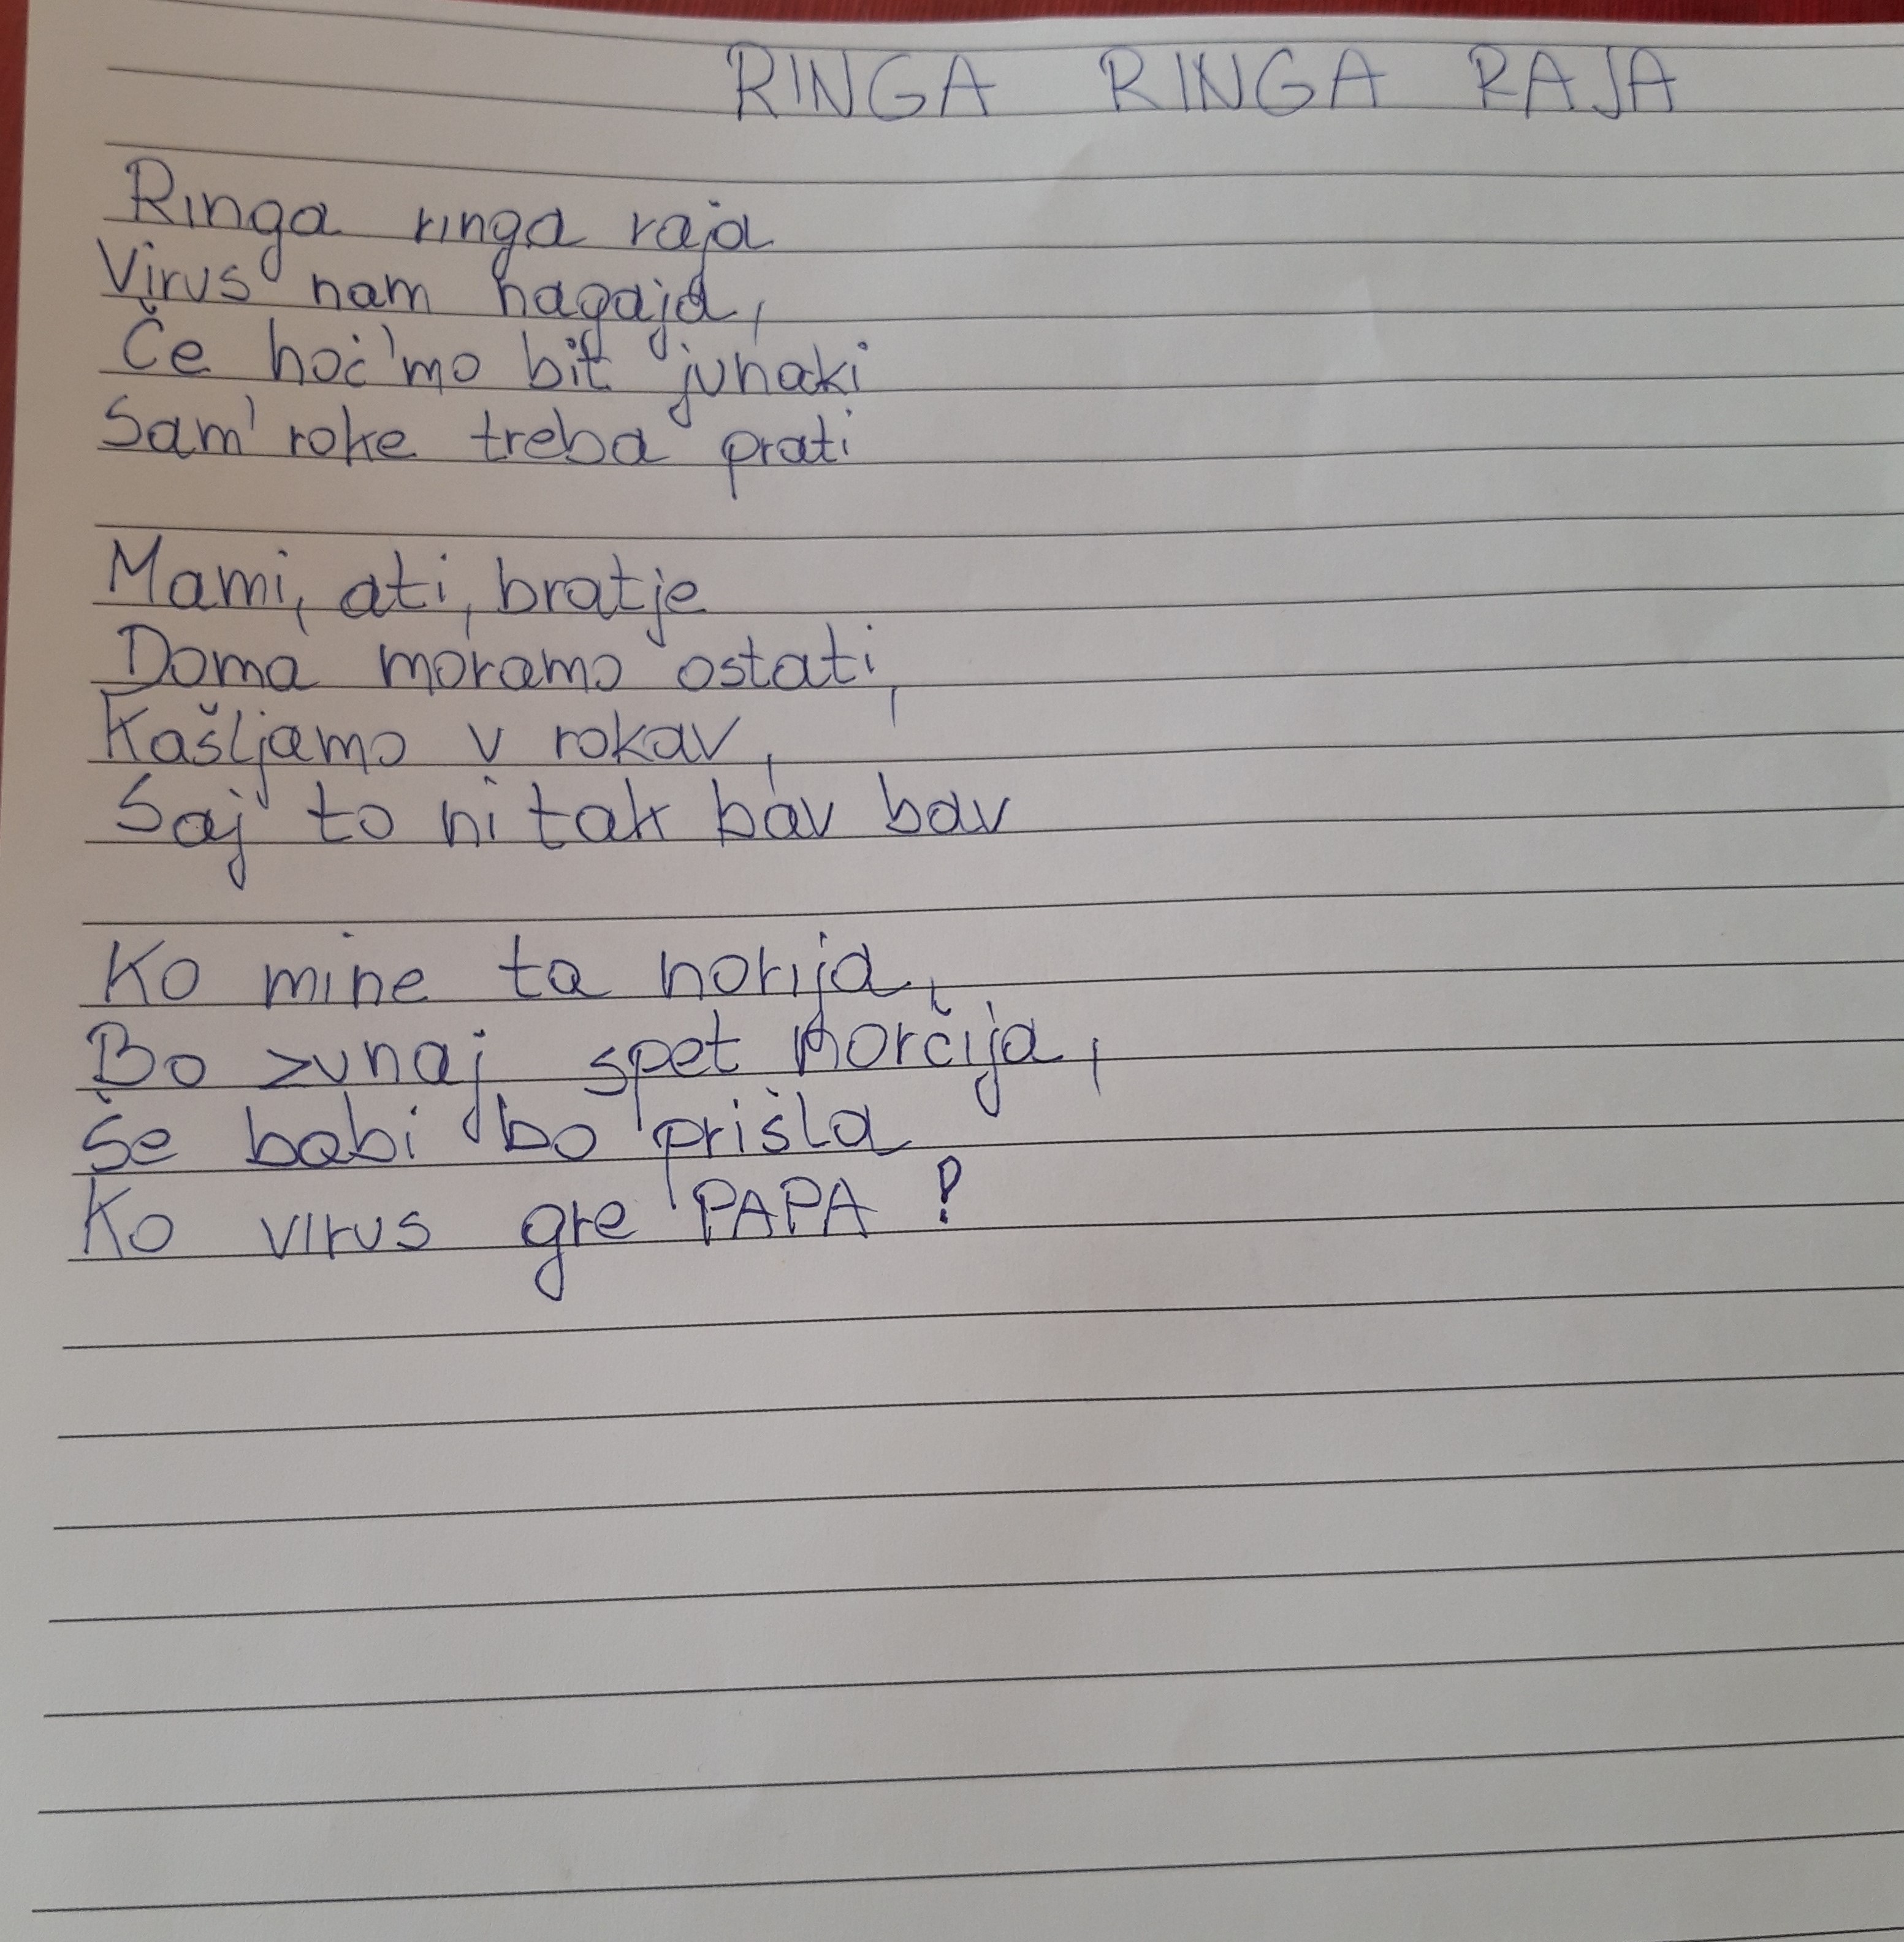 RINGA RINGA RAJA
Ringa ringa raja
Virus nam nagaja,
Če hoč'mo bit junaki
Sam' roke treba prati
Mami, ati, bratje
Doma moramo ostati,
Kašljamo v rokav,
Saj to ni tak bav bav
Ko mine ta norija,
Bo zunaj spet norčija,
Še babi bo prišla
Ko virus gre PAPA!